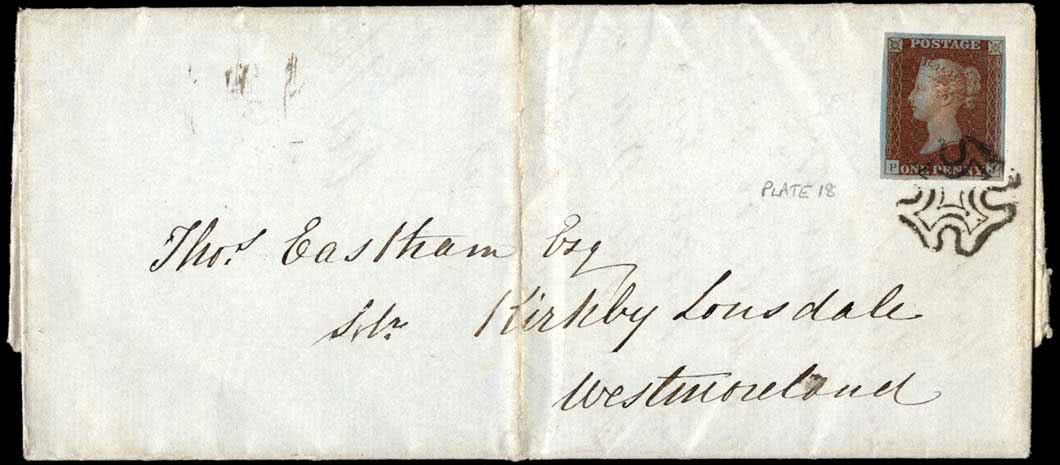 POSTAGE
P ONE PENNY
PLATE 18
Thos. Eastham Esq
Solr. Kirkby Lonsdale
Westmoreland